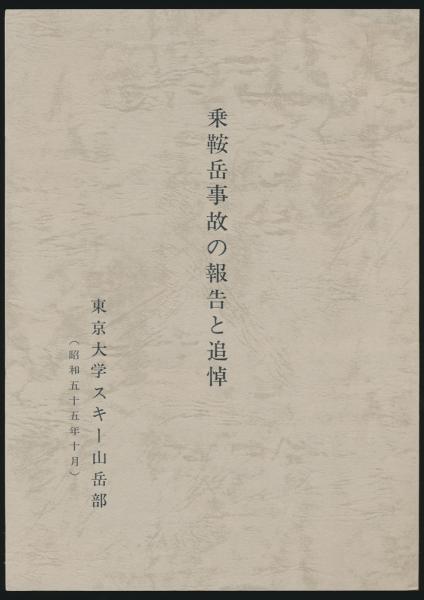 乗鞍岳事故の報告と追悼
東京大学スキー山岳部
（昭和五十五年十月）